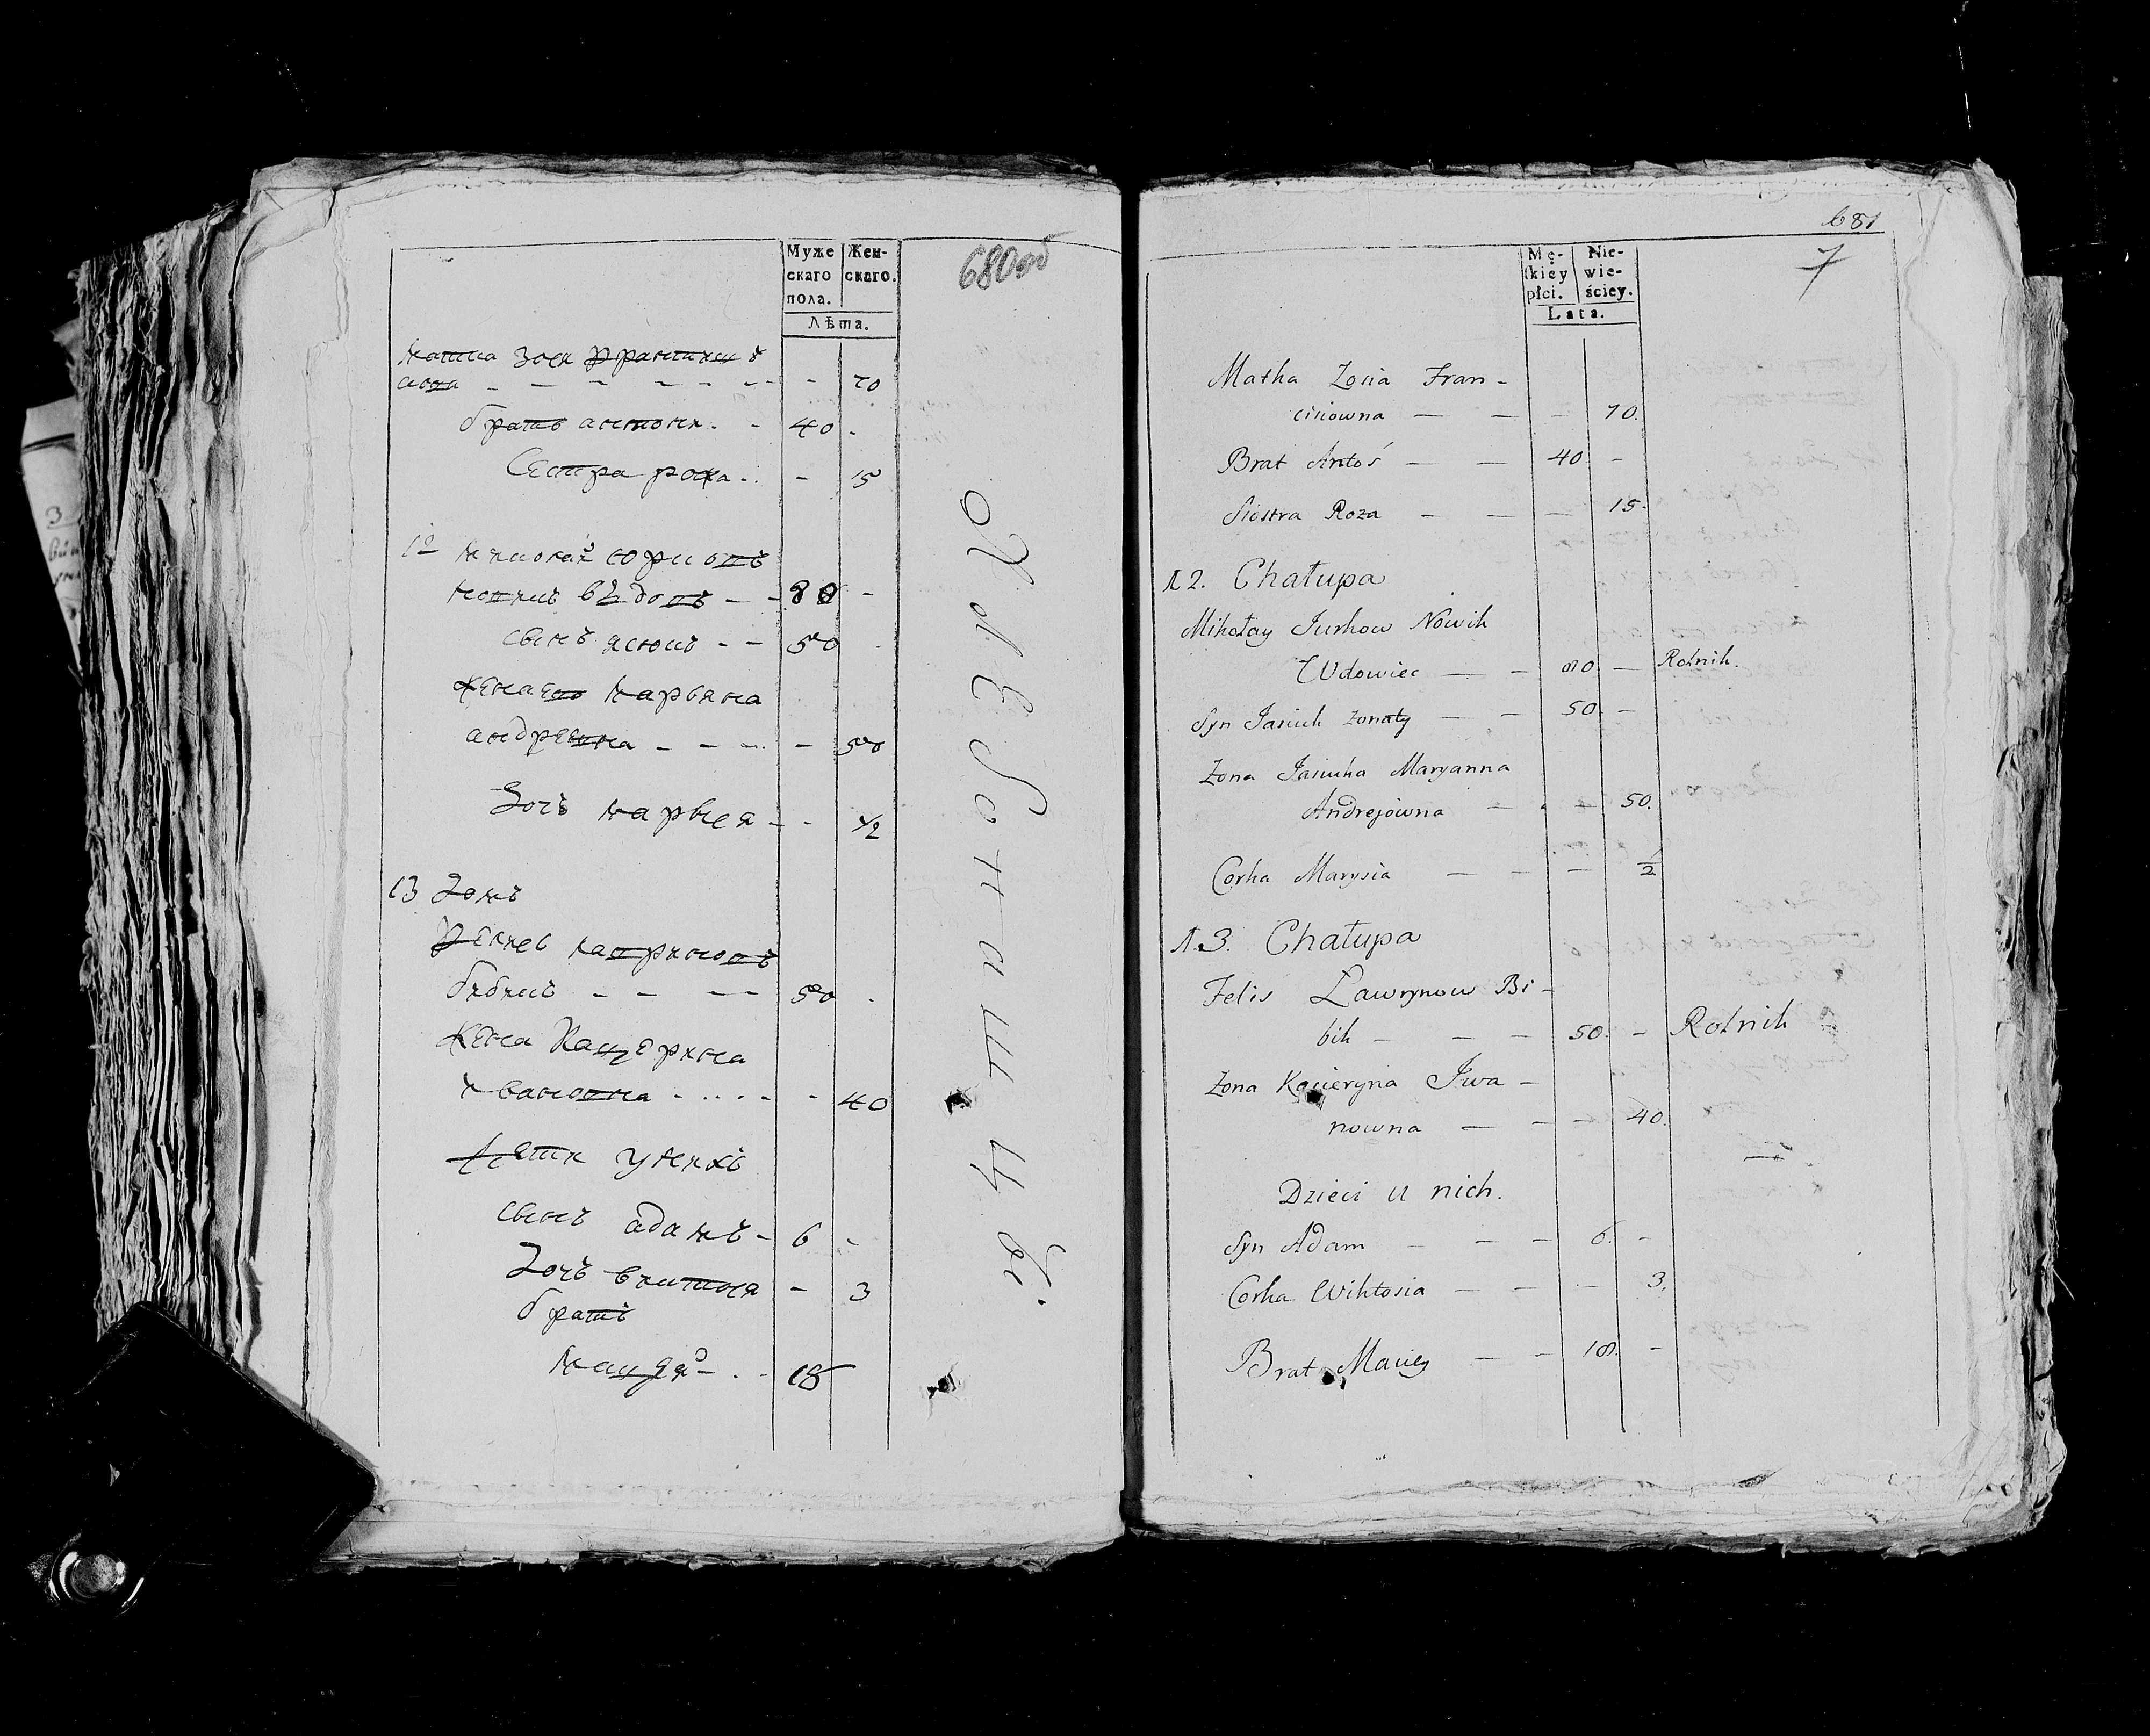 680об
Муже Жен-
скаго скаго.
пола.
Лѣта.
матка Зося
- 70
братъ антони - 40 -
Сестра рожа - - 15
12 николай юркоѡъ
новикъ вѣдоѡъ - - 80 -
сынъ ясюкъ - - 50 -
жена его марьяна
андреѡна - - - - 50
дочъ марыся - - 1/2
13 домъ
феликсъ
бибикъ - - - - 50 -
жена Кацерина
иваноѡна - - - - 40
дети у нихъ
сынъ адамъ - 6 -
дочъ виктося - 3
братъ
мацей - - 18
681
7
Mę- Nie-
skiey wie-
płci. ściey.
Lata.
Matka Zosia Fran-
cisiowna — — — 70.
Brat Antoś — — 40. -
Siostra Roza — — — 15.
12. Chałupa
Mikołay Jurkow Nowik
Wdowiec — — 80. — Rolnik.
Syn Jasiuk żonaty — — 50. —
Zona Jasiuka Maryanna
Andrejowna — - — 50.
Corka Marysia — — — 1/2
13. Chałupa
Felis Lawrynow Bi-
bik — — — 50. - Rolnik
Zona Kacieryna Iwa-
nowna — — — 40.
Dzieci u nich.
Syn Adam — — — 6. -
Corka Wiktosia — — — 3.
Brat Maciey — — 18. -